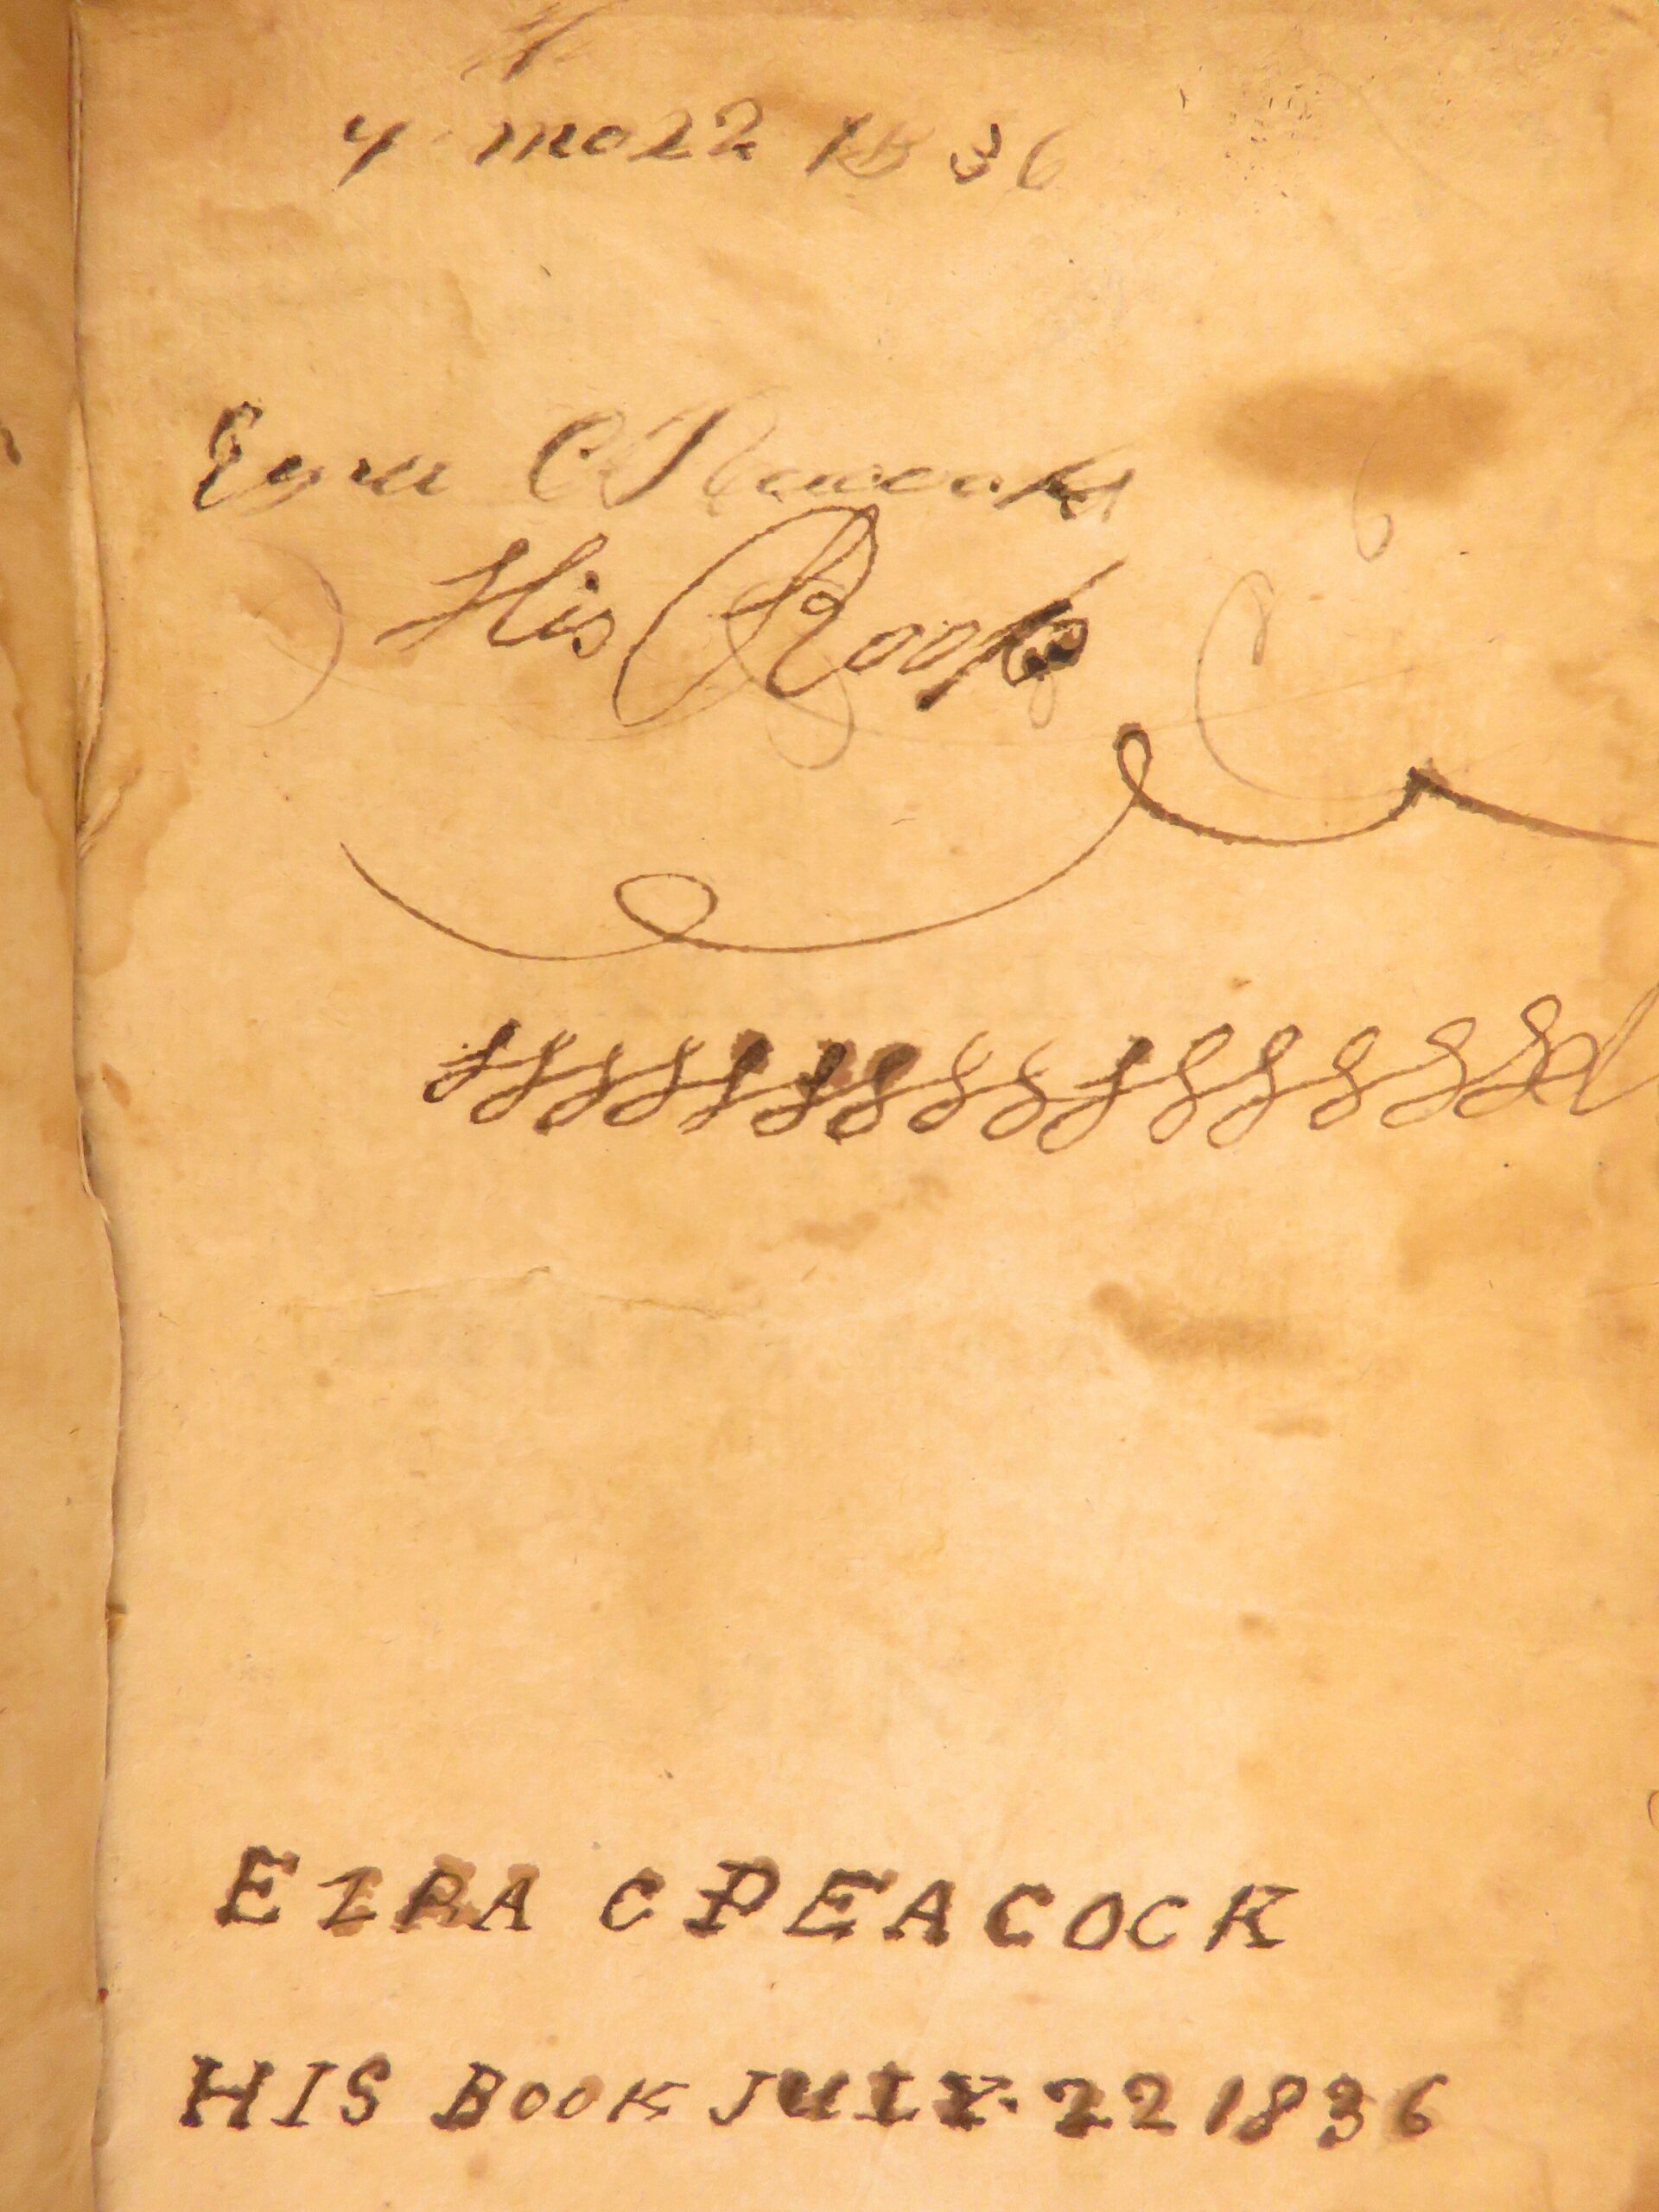 4 mo 22 1836
Ezra C Peacock
His Book
EZRA C PEACOCK
HIS BOOK JULY. 22 1836